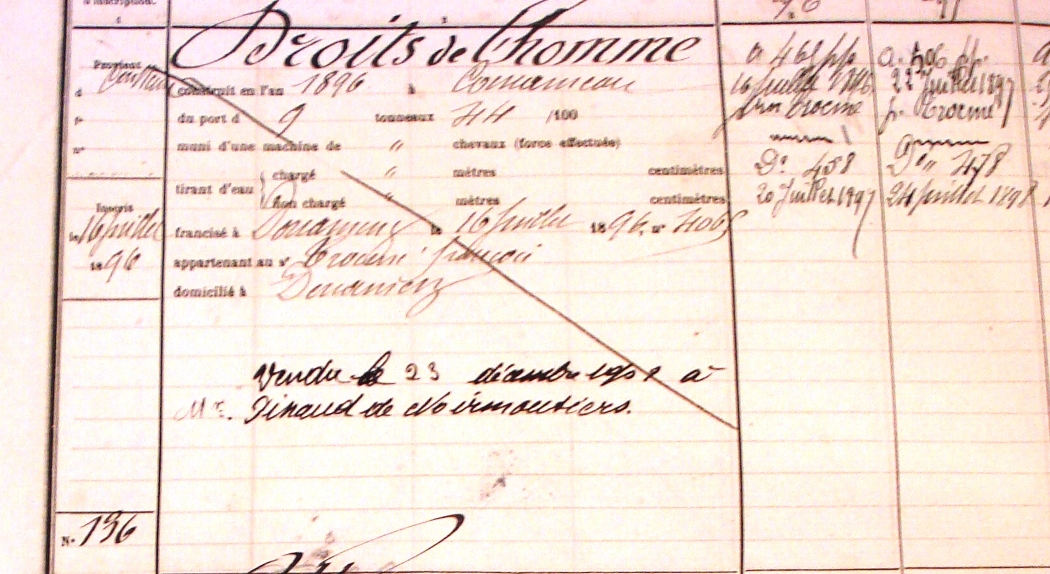 d'inscription.
Droits de l'homme
Provient
d Constru construit en l'an 1896 à Concarneau
f° du port d 9 tonneaux 44 /100
n° muni d'une machine de " chevaux (force effectuée)
tirant d'eau { chargé " mètres centimètres
Non chargé " mètres centimètres
Inscrit
le 16 juillet francisé à Douarnenez le 16 juillet 1896, n° 4065
1896 appartenant au sr François
domicilié à Douarnenez
Vendu le 23 décembre 1901 à
Mr. Pinaud de Noirmoutiers.
N° 136
a 468 pp
16 juillet 1896
Trocmé
D° 458
20 Juillet 1897
a. 506 pp.
22 Juillet 1897
p. Trocmé
D° " 478
24 juillet 1898